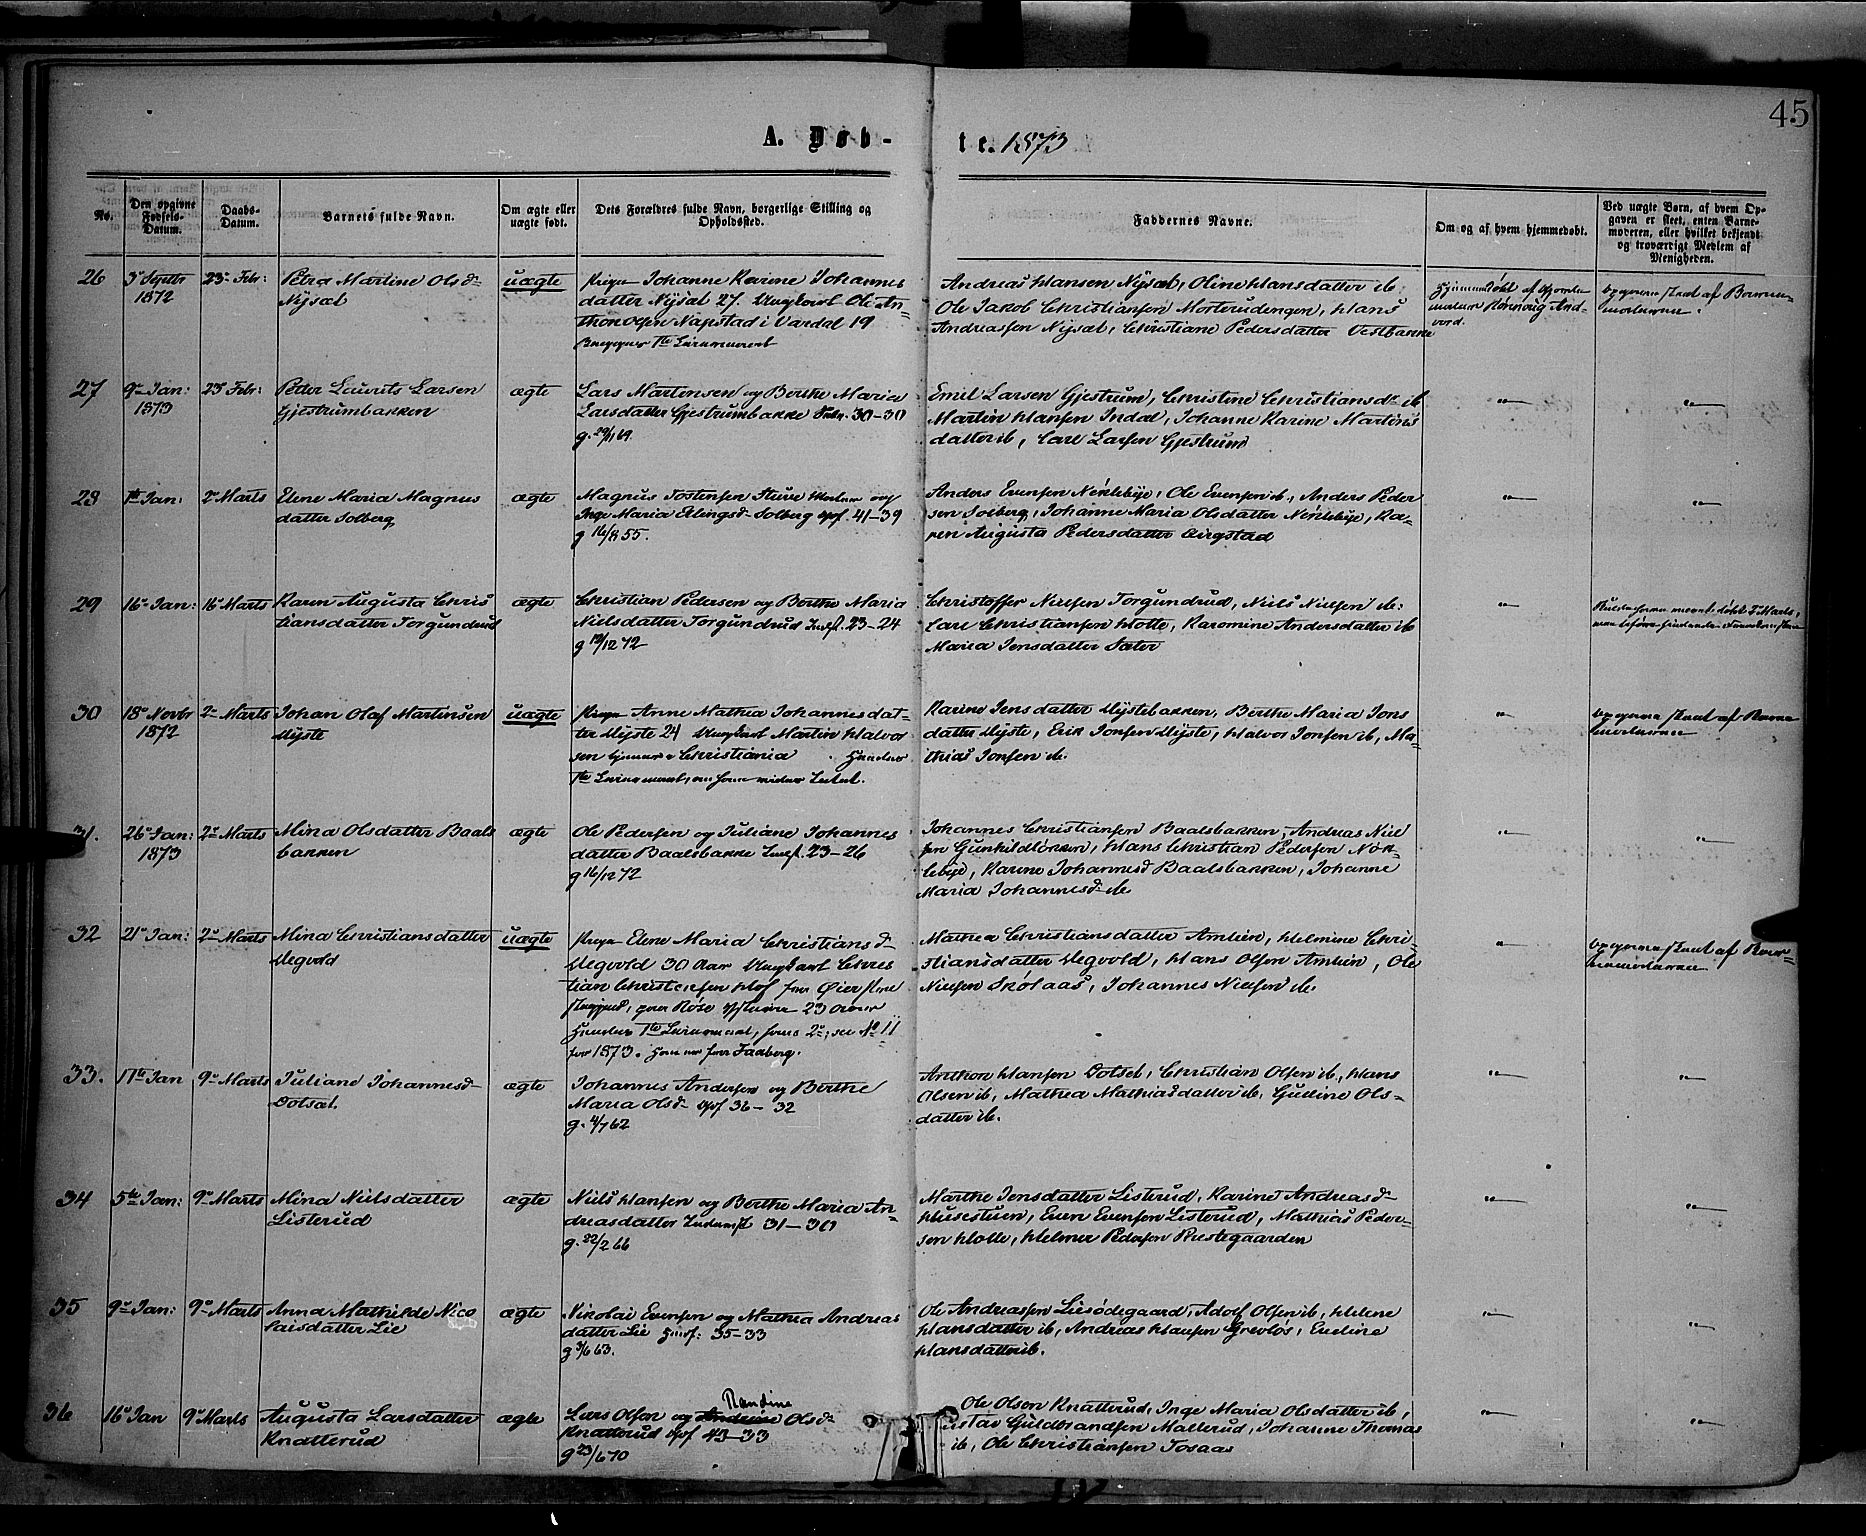 45
A. Døb-
te. 1873
No.
Den opgivne Fødsels-Datum.
Daabs-Datum.
Barnets fulde Navn.
Om ægte eller uægte født.
Dets Forældres fulde Navn, borgerlige Stilling og Opholdssted.
Faddernes Navne.
Om og af hvem hjemmedøbt.
Ved uægte Børn, af hvem Opgaven er skeet, enten Barnemoderen, eller hvilket bekjendt og troværdigt Medlem af Menigheden.
26 3 Septbr 1872 23 Febr:
Petra Martine Olsd
Nysæt
uægte
Pigen Johanne Karine Johannes
datter Nysæt 27. Ungkarl Ole An-
thon Olsen Napstad i Vardal 19
Begges 1te Leiermaal
Andreas Hansen Nysæt, Oline Hansdatter ib
Ole Jakob Christiansen Morterudengen, Hans
Andreassen Nysæt, Christiane Pedersdatter Vestbakke
Hjemmedøbt af
opgivne skeet af Barne-
moderen.
27 9 Jan: 1873 23 Febr:
Peder Laurits Larsen
Gjestrumbakken
ægte
Lars Martensen og Berthe Maria
Larsdatter Gjestrumbakke 30-30
g. 29/1 69.
Emil Larsen Gjestrum, Christine Christiansdr ib
Martin Hansen Indal, Johanne Karine Martins
datter ib, Carl Larsen Gjestrum
28 1te Jan: 2 Marts
Elene Maria Magnus
datter Solberg
ægte
Magnus Tostensen Stuve og
Inge Maria Erlingsd Solberg 41-39
g 16/8 55.
Anders Evensen Nøklebye, Ole Evensen ib, Anders Peder
sen Solberg, Johanne Maria Olsdatter Nøklebye, Ka-
ren Augusta Pedersdatter
29 16 Jan: 16 Marts
Karen Augusta Chris
tiansdatter Torgundrud
ægte
Christian Pedersen og Berthe Maria
Nielsdatter Torgundrud Indst. 23-24
g 19/12 72
Christoffer Nielsen Torgundrud, Niels Nielsen ib:
Carl Christiansen Hotte, Karomine Andersdatter ib
Maria Jensdatter Sæter
30 18 Novbr 1872 2 Marts
Johan Olaf Martinsen
Myste
uægte
Pigen Anne Mathea Johannesdat-
ter Myste 24 Ungkarl Martin Halvor
sen Christiania
1te Leiermaal,
Karine Jensdatter Mystebakken, Berthe Maria Jons
datter Myste, Erik Jonsen Myste, Halvor Jonsen ib, Ma-
thias Jonsen ib.
opgivne skeet af Barne
moderen
31. 26 Jan: 1873 2 Marts
Mina Olsdatter Baals
bakken
ægte
Ole Pedersen og Juliane Johannes
datter Baalsbakke Indst. 23-26
g 16/12 72
Johannes Christiansen Baalsbakken, Andreas Niel
sen Gunhildløkken, Hans Christian Pedersen Nøk-
lebye, Karine Johannesd Baalsbakken, Johanne
Maria Johannesd ib
32 21 Jan: 2 Marts
Mina Christiansdatter
Megvold
uægte
Pigen Elene Maria Christiansd
Megvold 30 Aar Ungkarl Chris
tian Christensen Hof fra Øier
23
1te Leiermaal, hans 2, see No 11
for 1873. fra Faaberg.
Mathea Christiansdatter Amlien, Helmine Chri-
stiansdatter Megvold, Hans Olsen Amlien, Ole
Nielsen Skolaas, Johannes Nielsen ib.
opgivne skeet af Barne-
moderen
33. 17te Jan 9 Marts
Juliane Johannesd
Dotset
ægte
Johannes Andersen og Berthe
Maria Olsd 36-32
g. 4/7 62
Anthon Hansen Dotset, Christian Olsen ib, Hans
Olsen ib, Mathea Mathiasdatter ib, Gudine Ols-
datter ib.
34 5te Jan: 9 Marts
Mina Nielsdatter
Listerud
ægte
Niels Hansen og Berthe Maria An-
dreasdatter 31-30
g. 22/2 66
Marthe Jensdatter Listerud, Karine Andreasd
Husestuen, Even Evensen Listerud, Mathias Peder-
sen Hotte, Helmer Pedersen Prestegaarden
35 9 Jan: 9 Marts
Anna Mathilde Nico
laisdatter Lie
ægte
Nikolai Evensen og Mathea Andreas
datter Lie 35-33
g 3/6 63.
Ole Andreassen Liesødegaard, Adolf Olsen ib, Helene
Hansdatter ib, Andreas Hansen Grevløs, Eneline
Hansdatter ib.
36 16 Jan 9 Marts
Augusta Larsdatter
Knatterud
ægte
Randine
Lars Olsen og Andrine Olsd
Knatterud 43-33
g 23/6 70
Ole Olsen Knatterud, Inge Maria Olsdatter ib,
Guldbrandsen Mallerud, Johanne Thomas
ib, Ole Christiansen Tosaas